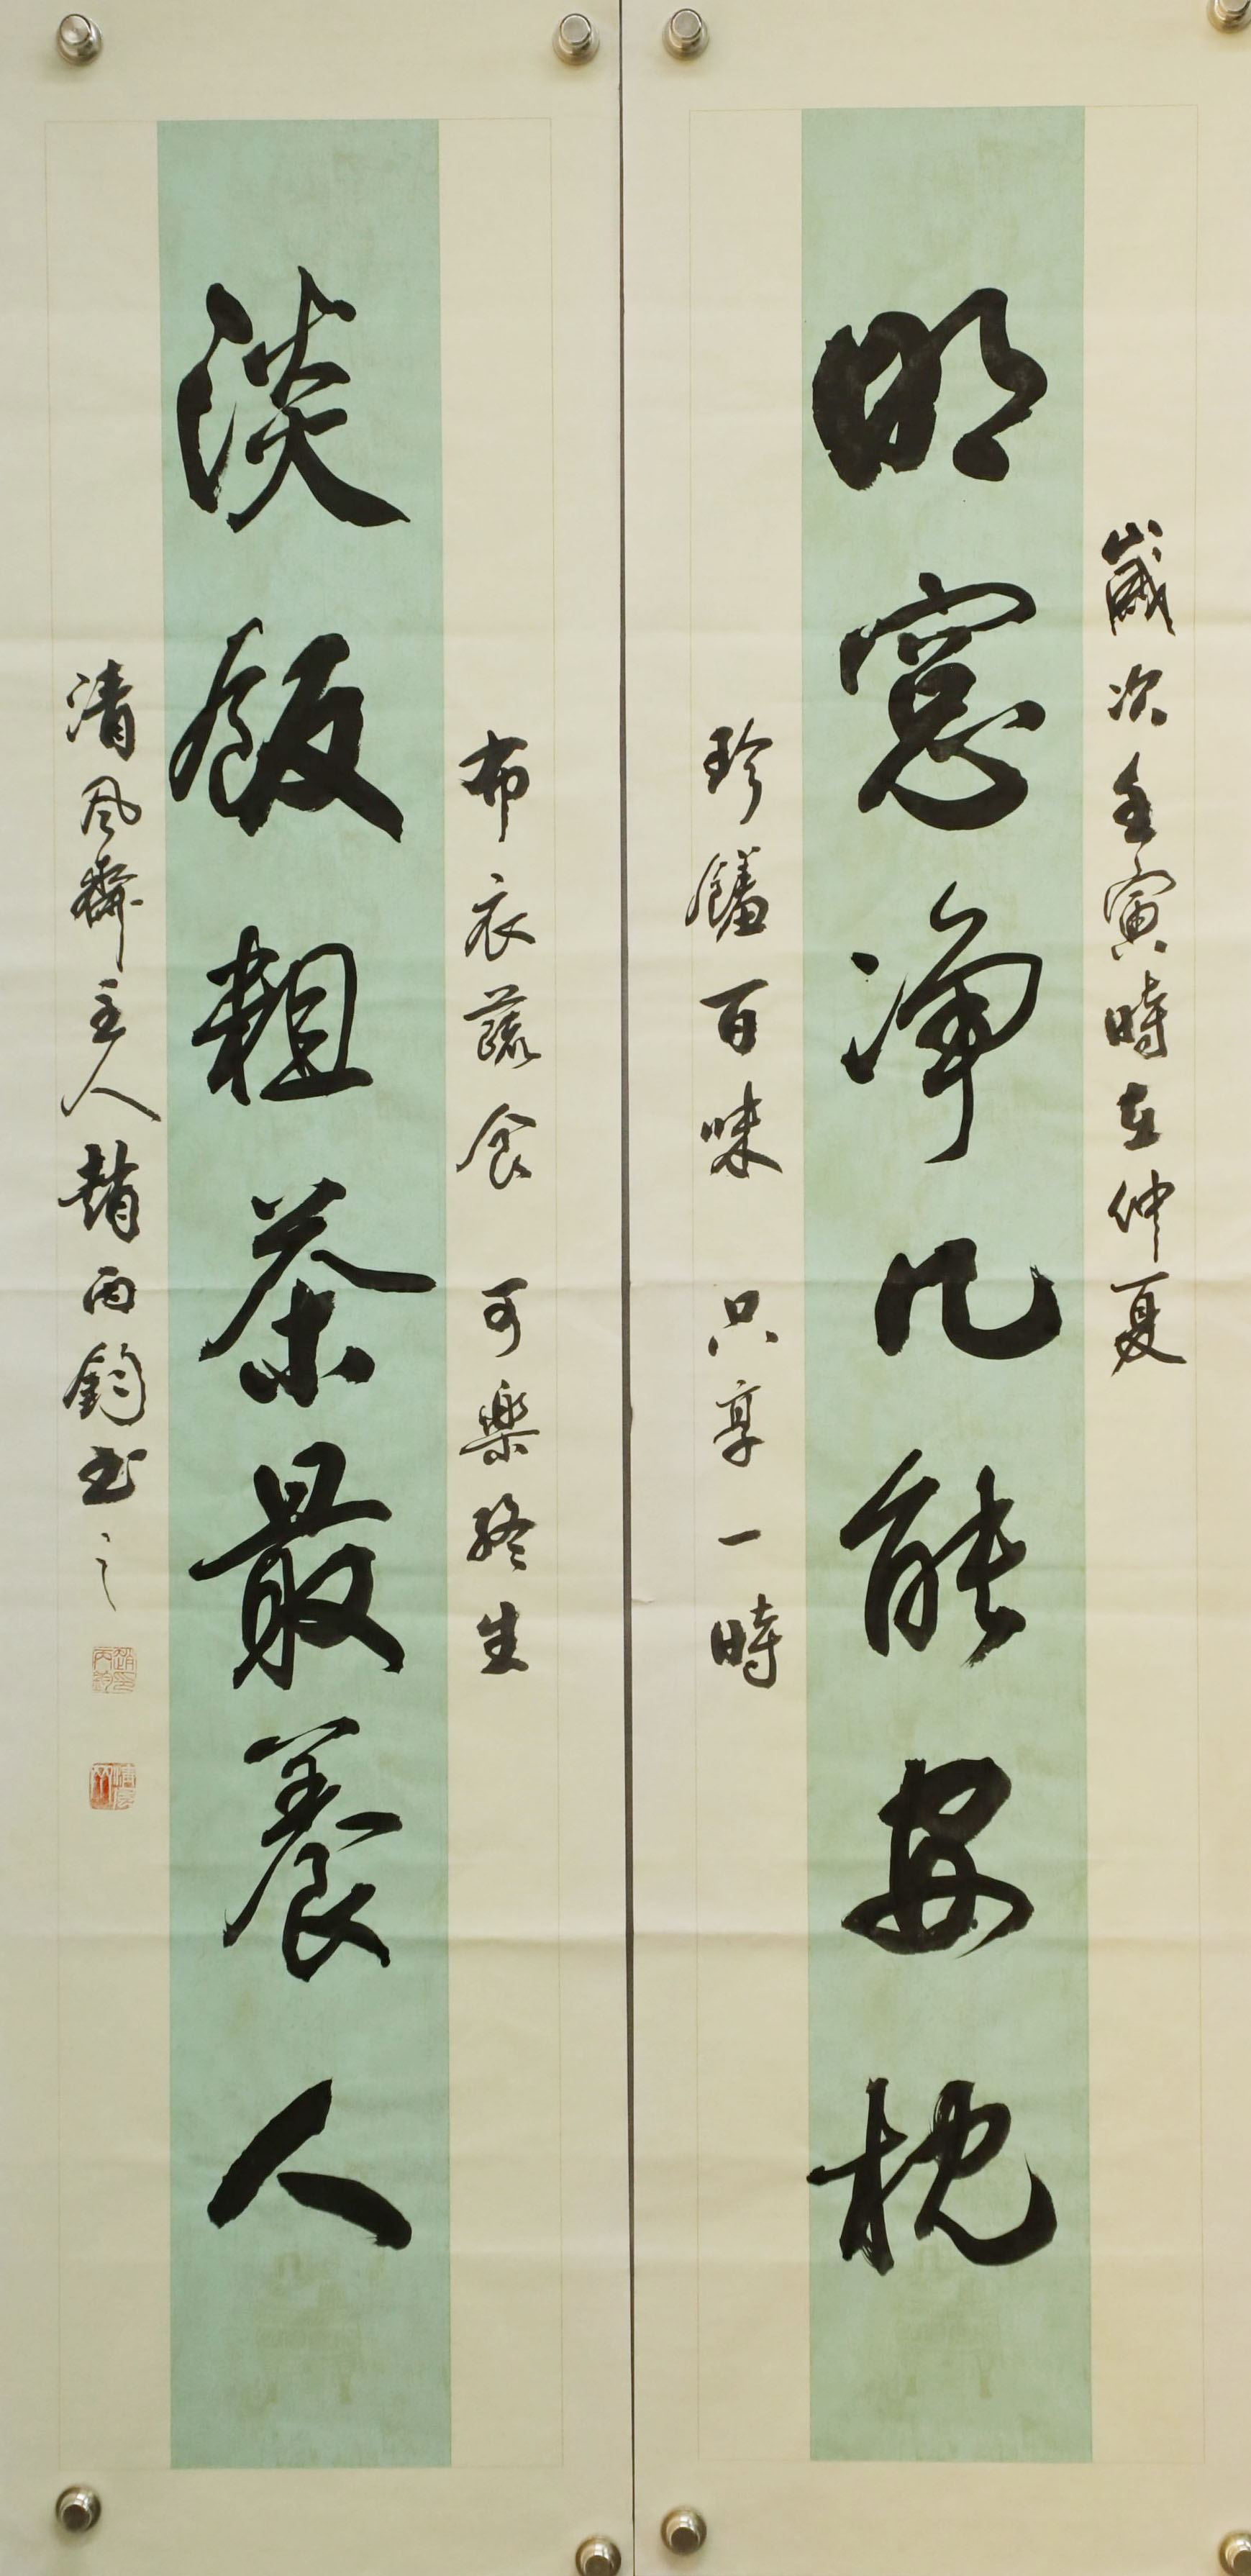 歲次壬寅時在仲夏
明窓淨几能安枕
珍饈百味 只享一時
布衣蔬食 可樂終生
淡飯粗茶最養人
清風齋主人趙丙鈞書之